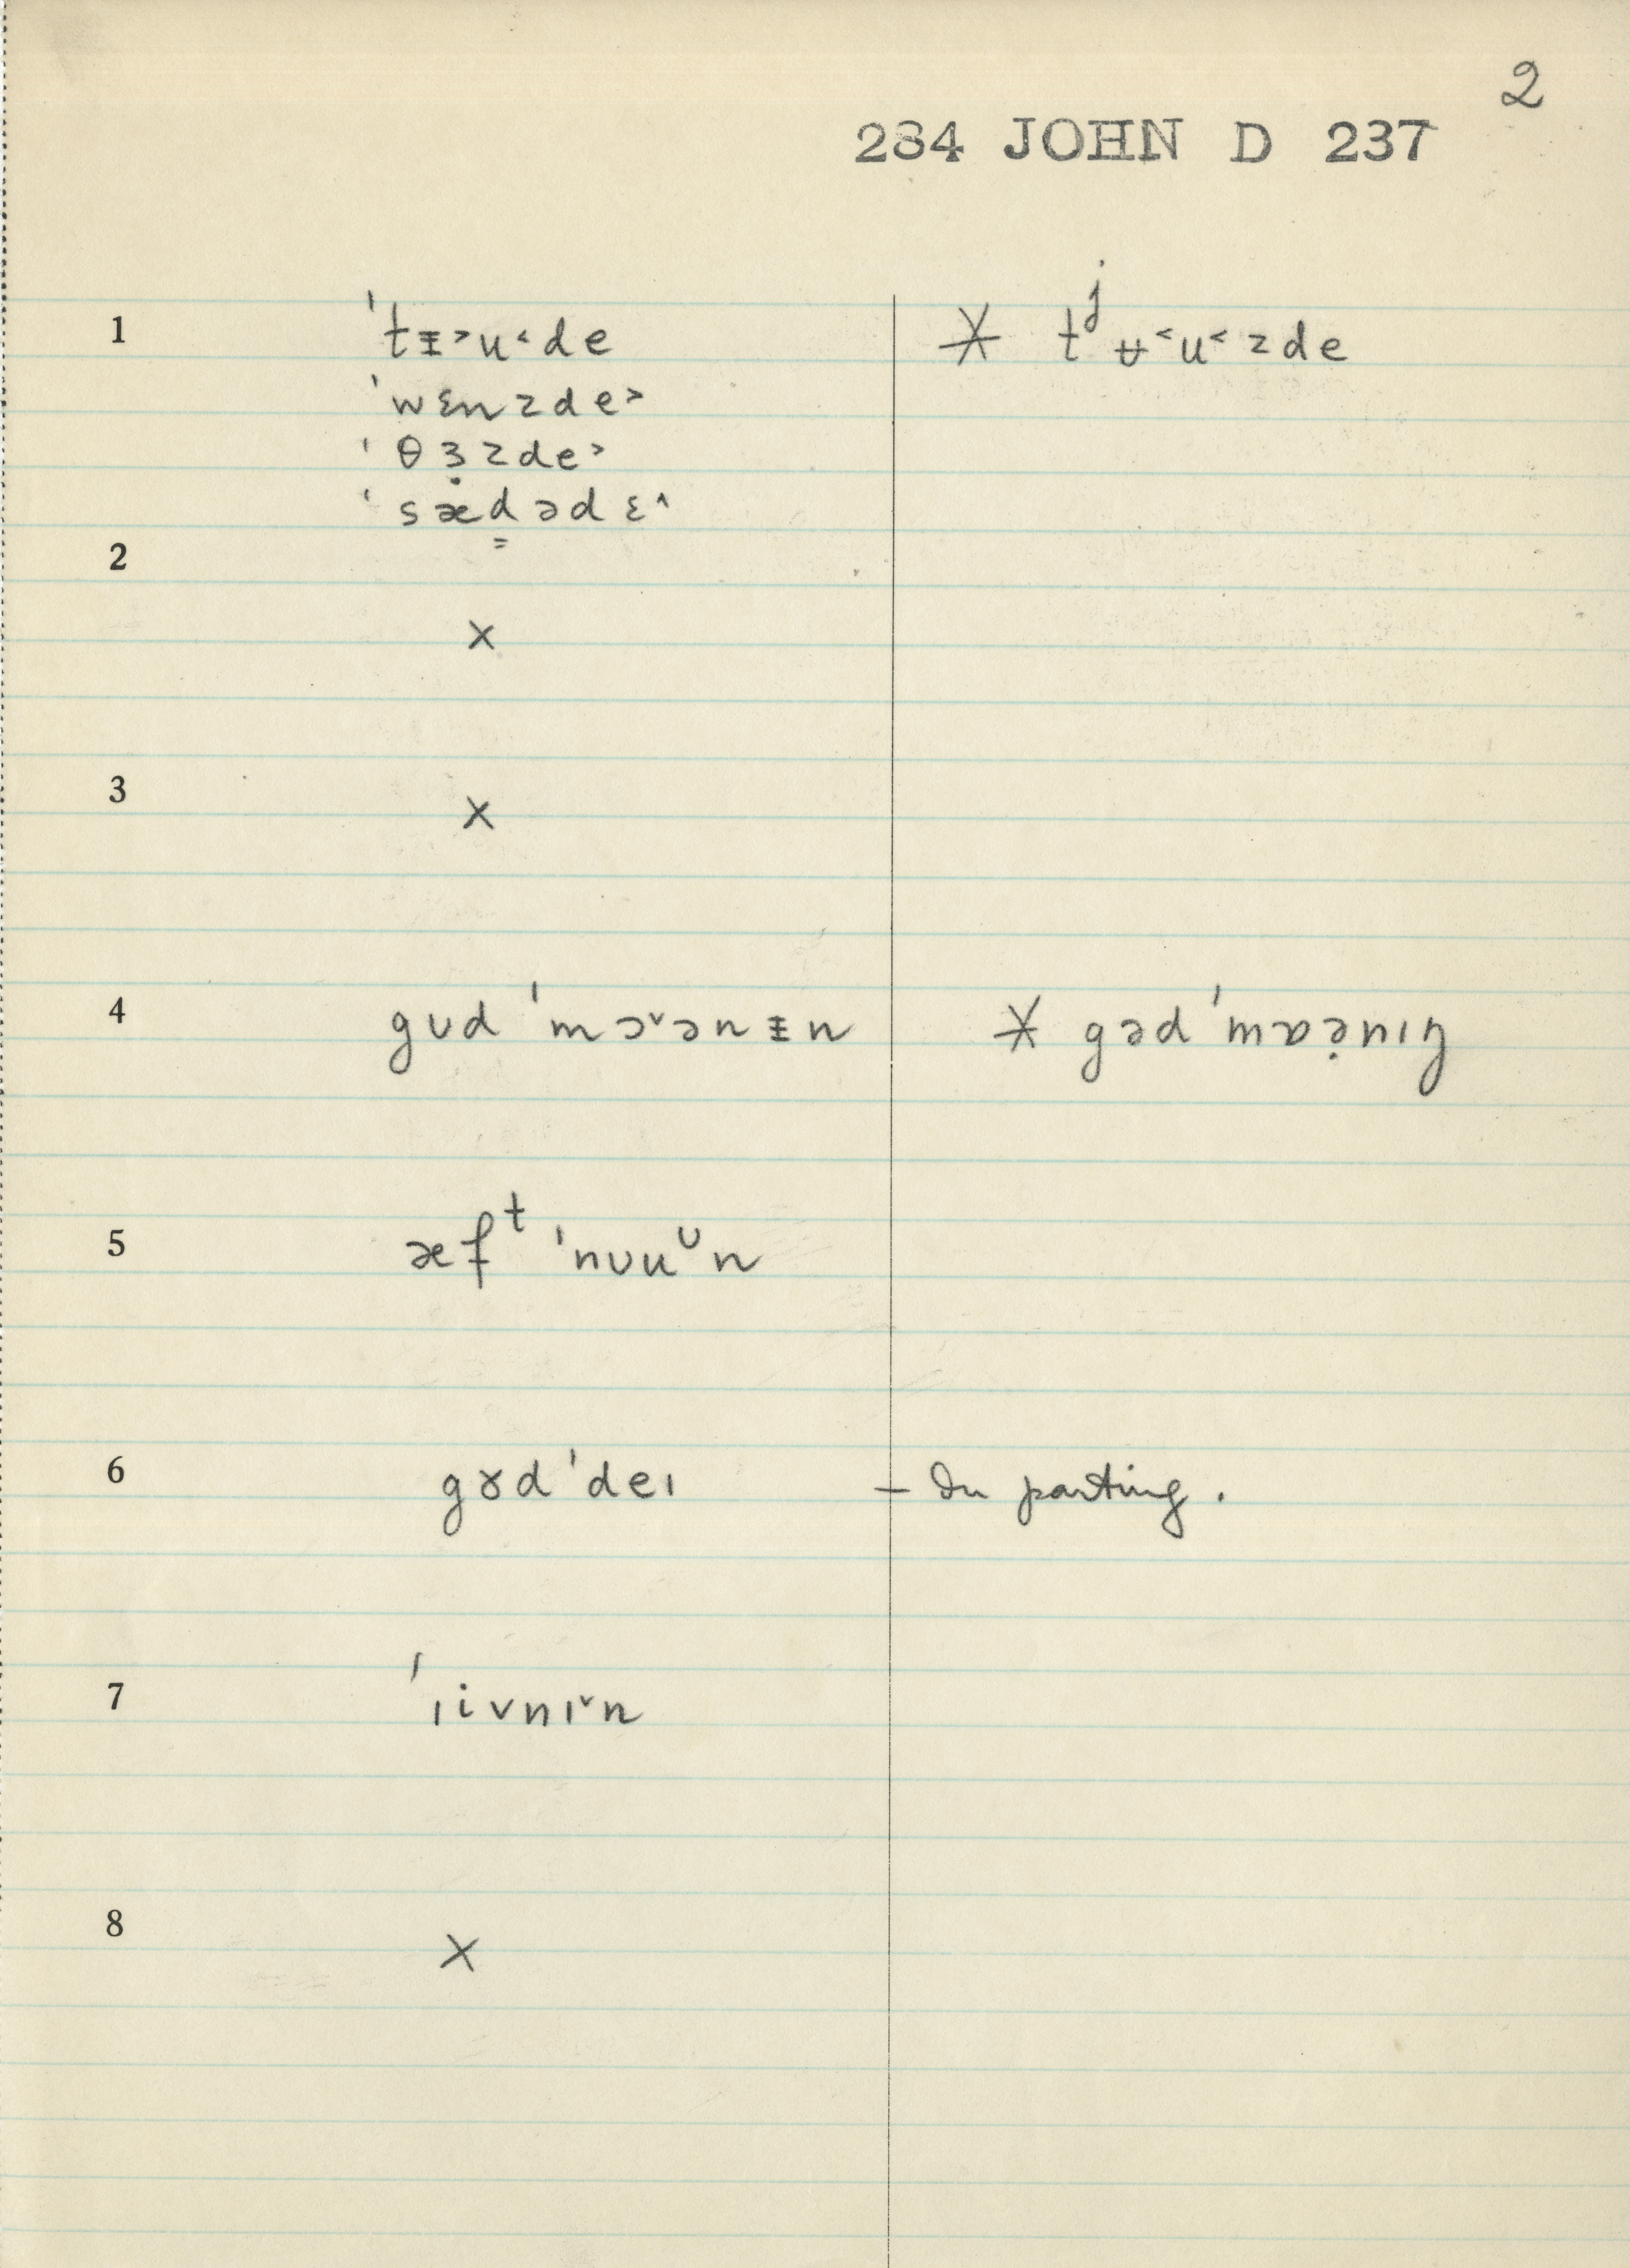 2
284 JOHN D 237
1 ˈtɪ̵˃u˂de ⚹ tʲʉ˂u˂zde
ˈwɛnzde˃
ˈθɜ̣zde˃
ˈsæd̳ədɛ˄
2
×
3
×
4 gʊd ˈmɔ˅ənɪ̵n ⚹ gəd ˈmɒə̣nɪŋ
5 æfᵗ ˈnʊuᶷn
6 gɤd ˈdeɪ – In parting.
7 ˈɪivnɪ˅n
8 ×